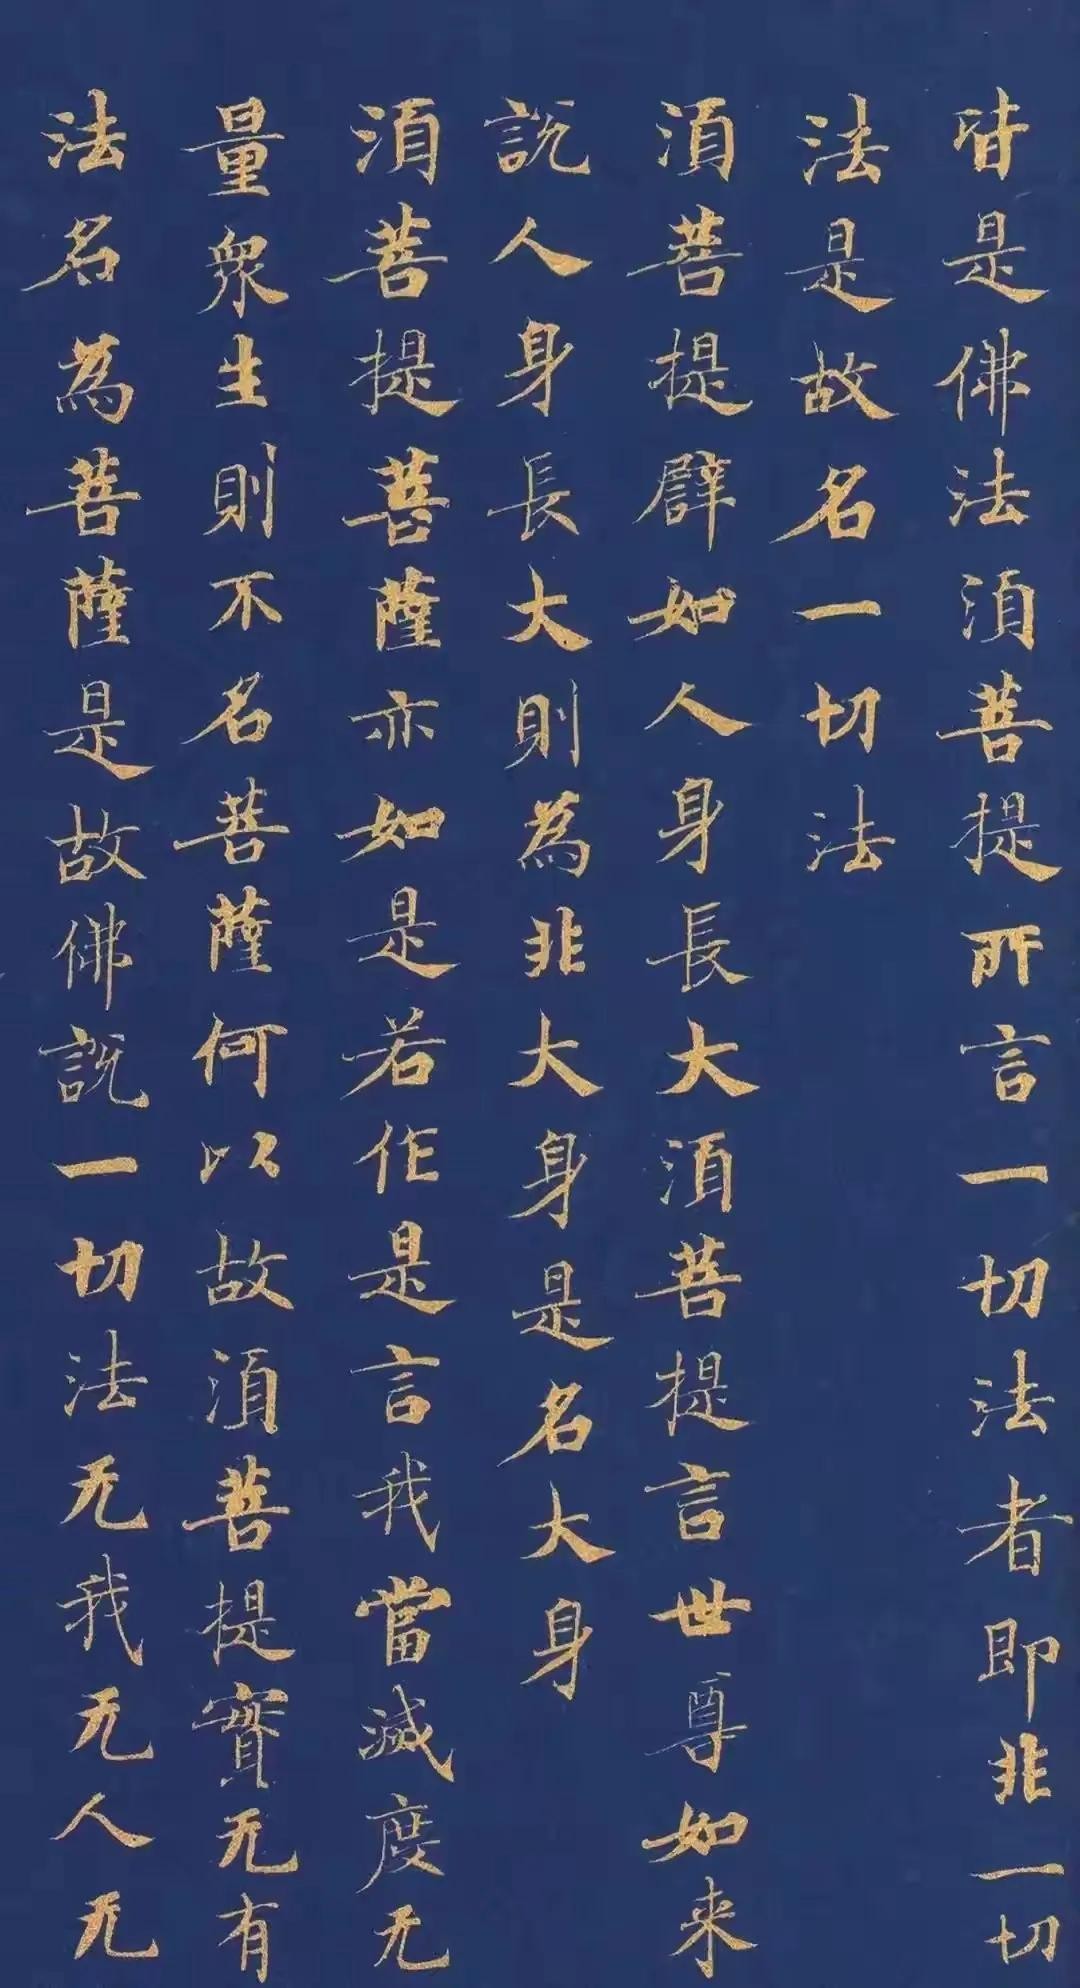 皆是佛法須菩提所言一切法者即非一切
法是故名一切法
須菩提譬如人身長大須菩提言世尊如来
說人身長大則為非大身是名大身
須菩提菩薩亦如是若作是言我當滅度无
量衆生則不名菩薩何以故須菩提實无有
法名為菩薩是故佛說一切法无我无人无